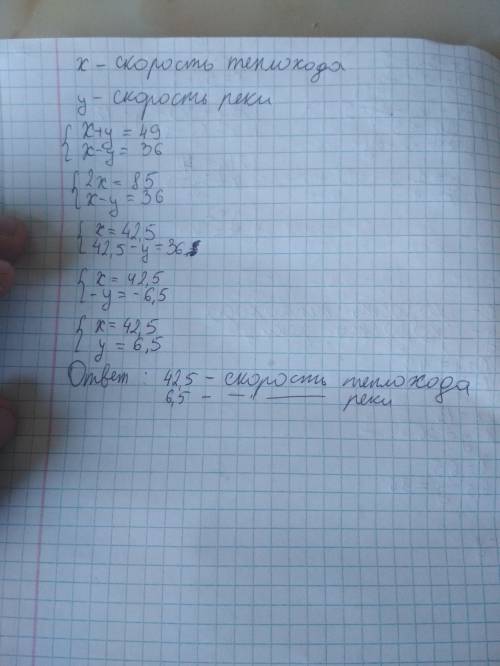 x – скорость теплохода
y – скорость реки
{ x+y = 49
x–y = 36
{ 2x = 85
x–y = 36
{ x = 42,5
42,5 – y = 36
{ x = 42,5
–y = –6,5
{ x = 42,5
y = 6,5
Ответ: 42,5 – скорость теплохода
6,5 – —„— реки